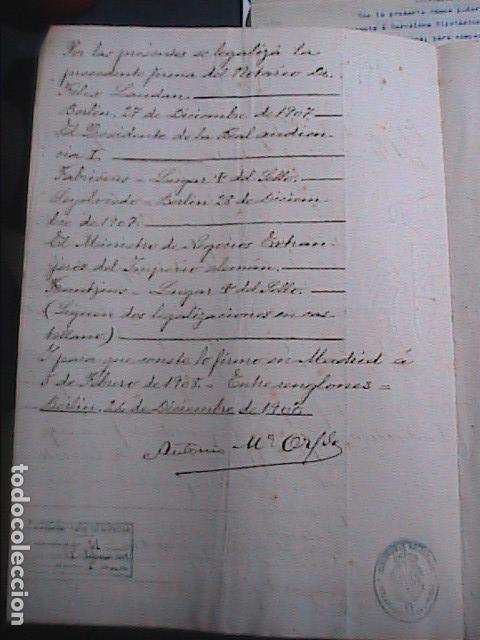 Por las presentes se legaliza la
precedente firma del Notario Dr.
Felix Landau.
Berlin, 27 de Diciembre de 1907.
El Presidente de la Real audien-
cia I.
Fabricius - Lugar + del Sello.
Legalizado - Berlin 28 de Diciem-
bre de 1907.
El Ministro de Negocios Extran-
jeros del Imperio alemán.
Frantzius - Lugar + del Sello.
(Siguen dos legalizaciones en cas-
tellano.)
Y para que conste lo firmo en Madrid á
5 de Febrero de 1908. - Entre renglones =
Berlin, de Diciembre de 1907.
Antonio Mª
todocoleccion